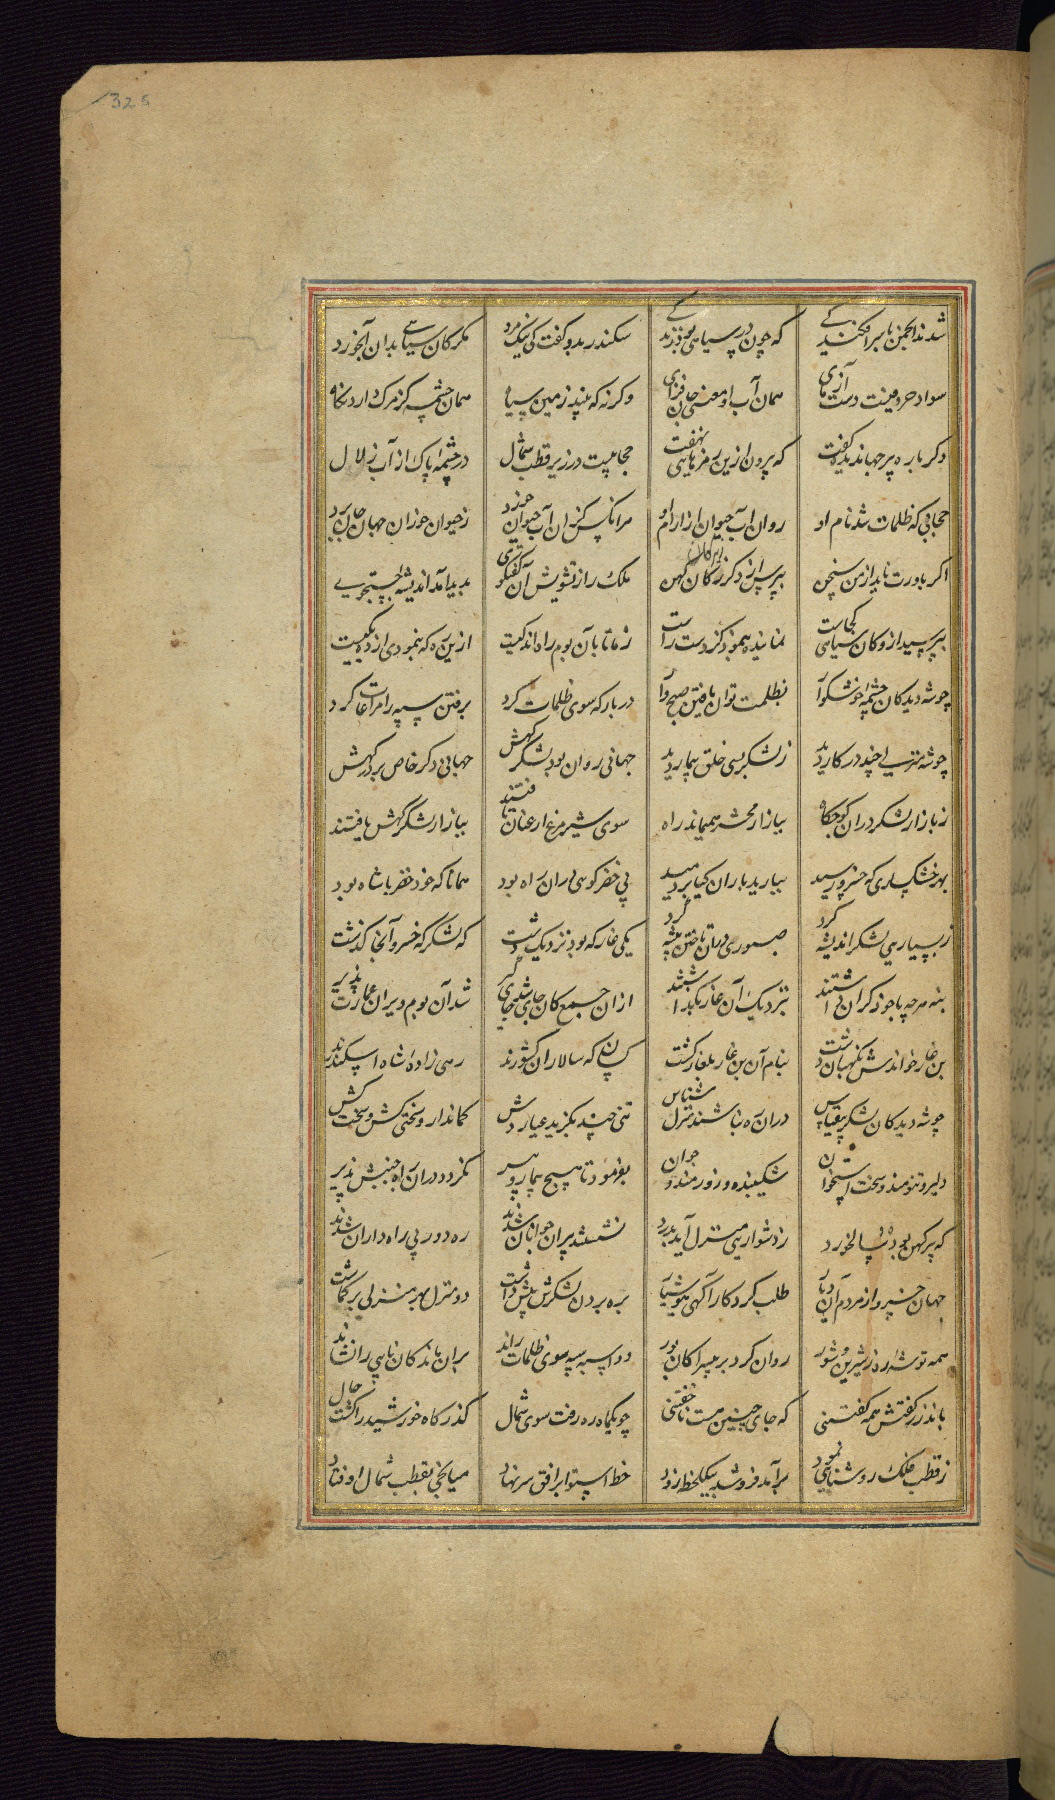 325
شدند انجمن با سرافکندگی که چون در سیاهی بود زندگی سکندر بدو گفت کی نیک مرد مگر کان سیاهی بدان آبخورد
سواد حروفیست دست آزمای همان آب او معنی جان فزای وگرنه که بیند زمین سیاه همان چشمه کز مرک دارد نگاه
دگر باره پیر جهاندیده گفت که بیرون ازین رمزهای نهفت حجابیست در زیر قطب شمال درو چشمه پاک از آب زلال
حجابی که ظلمات شد نام او روان آب حیوان از آرام او هر آنکس کزان آب حیوان خورد ز حیوان خوران جهان جان برد
اگر باورت ناید از من سخن بپرس از دگر زیرکان کهن ملک را ز تشویش آن گفتگوی پدید آمد اندیشه جستجوی
بپرسید ازو کان سیاهی کجاست نماینده بنمود کز دست راست ز ما تا بآن بوم راه اندکیست ازین ره که پیمودی از ده یکیست
چو شه دید کان چشمه خوشگوار بظلمت توان یافتن صبح وار در بارگه سوی ظلمات کرد برفتن سپه را مراعات کرد
چو شد منزلی چند در کار دید ز لشکر بسی خلق بیمار دید جهانی روان بود لشکر کهش جهانی دگر خاص بر درگهش
ز بازار لشکر در آن کوچگاه ببازار محشر همیماند راه سوی شیر مرغ ار عنان تافتند ببازار لشکر گهش یافتند
بهر خشکساری که خسرو رسید ببارید باران گیا بر دمید پی خضر گوئی در آن راه بود همانا که خود خضر با شاه بود
ز بسیاری لشکر اندیشه کرد صبوری در آن تاختن پیشه کرد یکی غار که بود نزدیک دشت که لشکر که خسرو آنجا گذشت
بنه هرچه با خود گران داشتند بنزدیک آن غار بگذاشتند از آن جمع کان جای شد جای گیر شد آن بوم ویران عمارت پذیر
بن غار خواندش نگهبان دشت بنام آن بن غار بلغار گشت کسانی که سالار آن کشورند رهی زاده شاه اسکندرند
چو شه دید کان لشکر بیقیاس در آن ره نباشند منزل شناس تنی چند بگزید عیاروش کماندار و سختی کش و سخت کش
دلیر و تنومند و سخت استخوان شکیبنده و زورمند و جوان بفرمود تا هیچ بیمار و پیر نگردد در آن راه جنبش پذیر
که پیر کهن بود سالخورد ز دشواری منزل آید بدرد نشستند پیران جوانان شدند ره دور پی راه داران شدند
جهان خسرو از مردم آن دیار طلب کرد کارآگهی هوشیار بره بردن لشکرش پیش داشت دو منزل بهر منزلی بر گماشت
همه توشه ره ز شیرین و شور روان کرد بر بیسراکان بور دو اسپه سپه سوی ظلمات راند بر آن باندگان نایبی را نشاند
باندرز گفتش همه گفتنی که جای چنین هست ناخفتنی چو یکماه ره رفت سوی شمال گذرگاه خورشید را گشت حال
ز قطب فلک روشنائی نمود برآمد فرو شد بیک لحظه زود خط استوا بر افق سر نهاد میانجی بقطب شمال اوفتاد